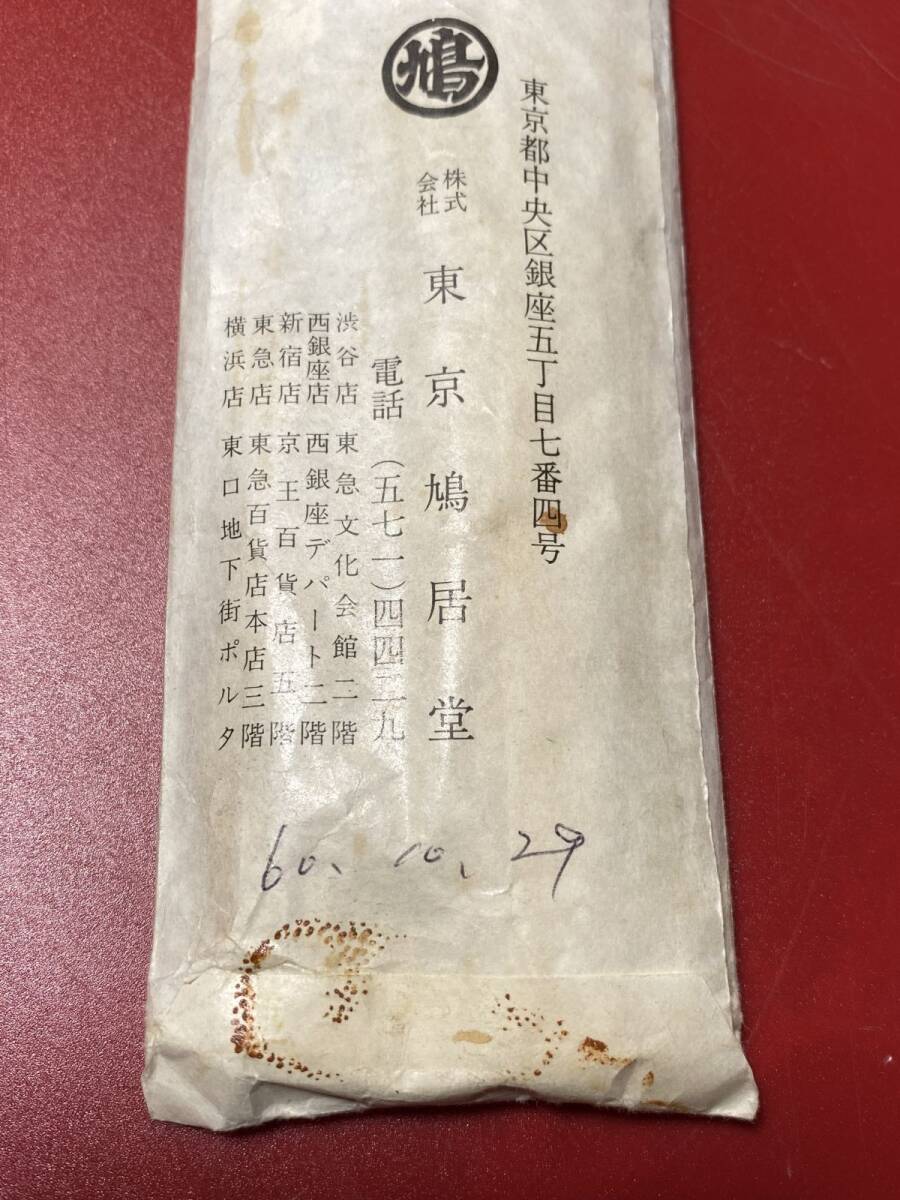 鳩
東京都中央区銀座五丁目七番四号
株式会社 東京鳩居堂
電話(五七一)四四二九
渋谷店 東急文化会館二階
西銀座店 西銀座デパート二階
新宿店 京王百貨店五階
東急店 東急百貨店本店三階
横浜店 東口地下街ポルタ
60、10、29